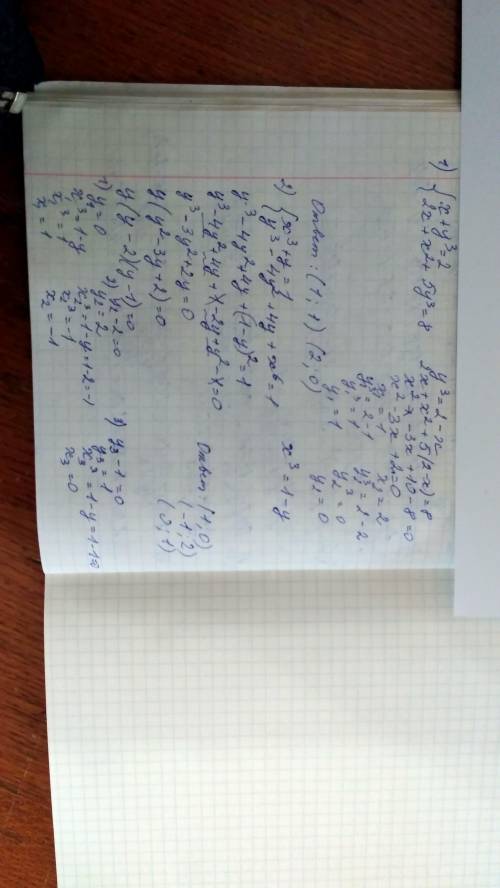 1) { x + y³ = 2
2x + x² + 5y³ = 8
y³ = 2 - x
2x + x² + 5(2-x) = 8
x² - 3x + 10 - 8 = 0
x² - 3x + 2 = 0
x₁ = 1 x₂ = 2
y₁³ = 2 - 1 y₂³ = 2 - 2
y₁³ = 1 y₂³ = 0
y₁ = 1 y₂ = 0
Ответ: (1; 1) (2; 0)
2) { x³ + y = 1
y³ - 4y² + 4y + x⁶ = 1
x³ = 1 - y
y³ - 4y² + 4y + (1-y)² = 1
y³ - 4y² + 4y + 1 - 2y + y² - 1 = 0
y³ - 3y² + 2y = 0
y(y² - 3y + 2) = 0
y(y - 2)(y - 1) = 0
1) y = 0 2) y₂ - 2 = 0 3) y₃ - 1 = 0
x₁³ = 1 - y y₂ = 2 y₃ = 1
x₁³ = 1 x₂³ = 1 - y = 1 - 2 = -1 x₃³ = 1 - y = 1 - 1 = 0
x₁ = 1 x₂³ = -1 x₃ = 0
x₂ = -1
Ответ: (1; 0)
(-1; 2)
(0; 1)